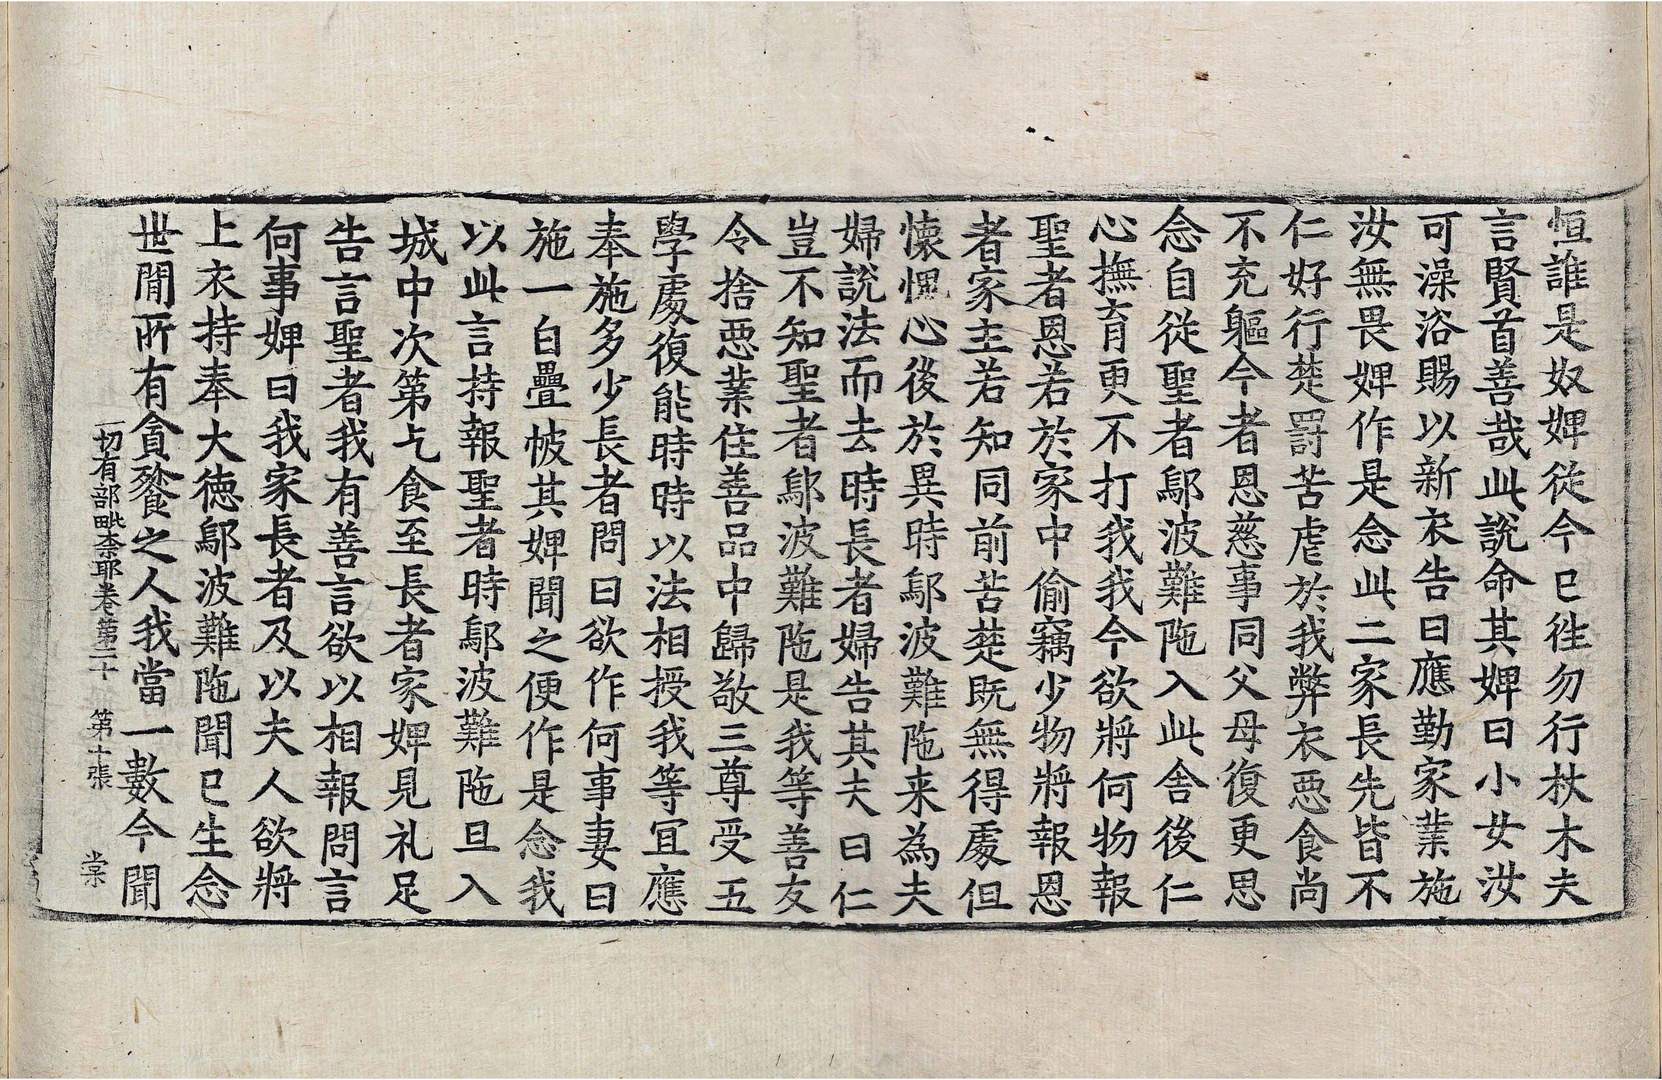 恒誰是奴婢從今已徃勿行杖木夫
言賢首善哉此說命其婢曰小女汝
可澡浴賜以新衣告曰應勤家業施
汝無畏婢作是念此二家長先皆不
仁好行楚罰苦虐於我弊衣惡食尚
不充軀今者恩慈事同父母復更思
念自從聖者鄔波難陁入此舍後仁
心撫育更不打我我今欲將何物報
聖者恩若於家中偷竊少物將報恩
者家主若知同前苦楚既無得處但
懐愧心後於異時鄔波難陁来為夫
婦說法而去時長者婦告其夫曰仁
豈不知聖者鄔波難陁是我等善友
令捨惡業住善品中歸敬三尊受五
學處復能時時以法相授我等宜應
奉施多少長者問曰欲作何事妻曰
施一白疊帔其婢聞之便作是念我
以此言持報聖者時鄔波難陁旦入
城中次第乞食至長者家婢見礼足
告言聖者我有善言欲以相報問言
何事婢曰我家長者及以夫人欲將
上衣持奉大德鄔波難陁聞已生念
世間所有貪餮之人我當一數今聞
一切有部毗柰耶卷第二十 第十張 棠